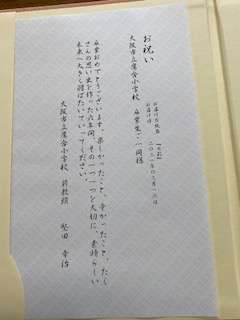 お祝い
大阪市立鷹合小学校 卒業生ご一同様
卒業おめでとうございます。楽しかったこと、辛かったこと、たく
さんの思い出を作った六年間、その一つ一つを大切に、素晴らしい
未来へ大きく羽ばたいていってください。
大阪市立鷹合小学校 前教頭 堅田 幸治